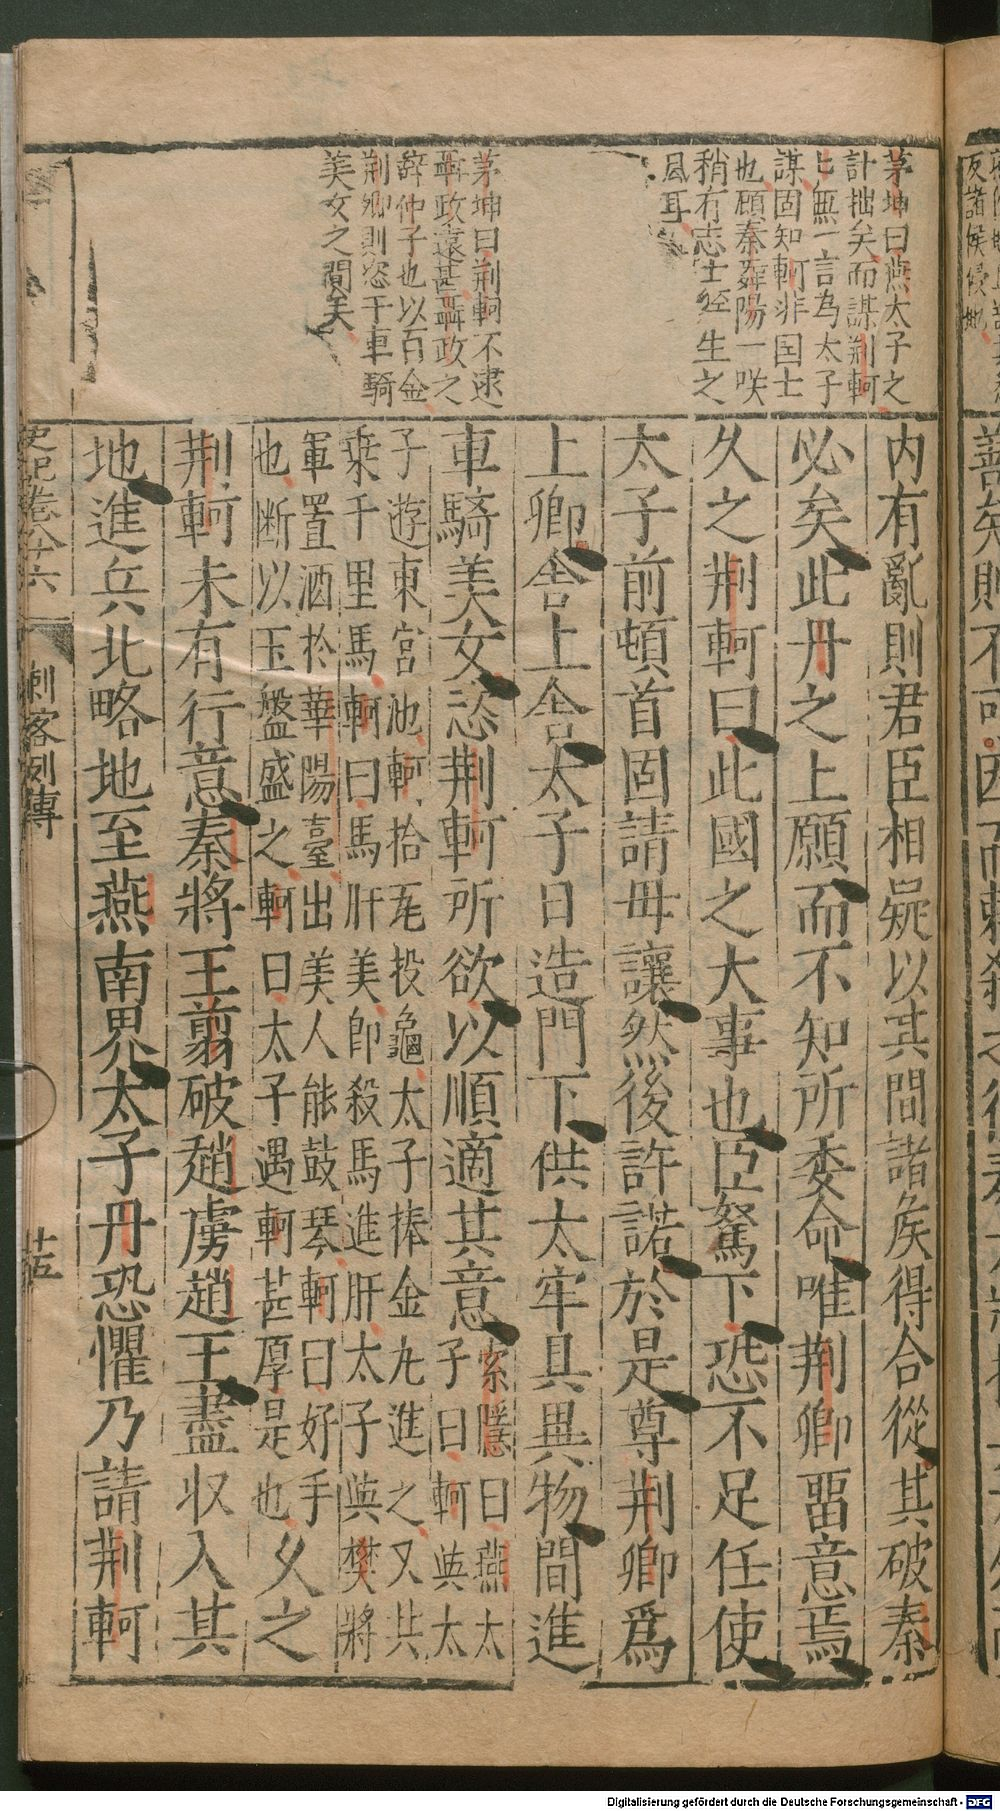 茅坤曰燕太子之
計拙矣而謀荆軻
無一言為太子
謀固知軻非国士
也顧秦舞陽一咲
稍有志士
生之
耳
茅坤曰荆軻不逮
聶政遠甚聶政之
辞仲子也以百金
荆卿則恣于車騎
美女之間矣
内有亂則君臣相疑以其間諸矦得合從其破秦
必矣此丹之上願而不知所委命唯荆卿畱意焉
久之荆軻曰此國之大事也臣駑下恐不足任使
太子前頓首固請毋讓然後許諾於是尊荆卿爲
上卿舎上舎太子日造門下供太牢具異物間進
車騎美女恣荆軻所欲以順適其意索隱曰燕太
子曰軻與太
子遊東宮池軻拾瓦投龜太子捧金丸進之又共
乗千里馬軻曰馬肝美即殺馬進肝太子與樊將
軍置酒於華陽臺出美人能鼓琴軻曰好手
也断以玉盤盛之軻曰太子遇軻甚厚是也久之
荆軻未有行意秦將王翦破趙虜趙王盡収入其
地進兵北略地至燕南界太子丹恐懼乃請荆軻
史記卷八十六
刺客列傳
廿五
Digitalisierung gefördert durch die Deutsche Forschungsgemeinschaft - DFG